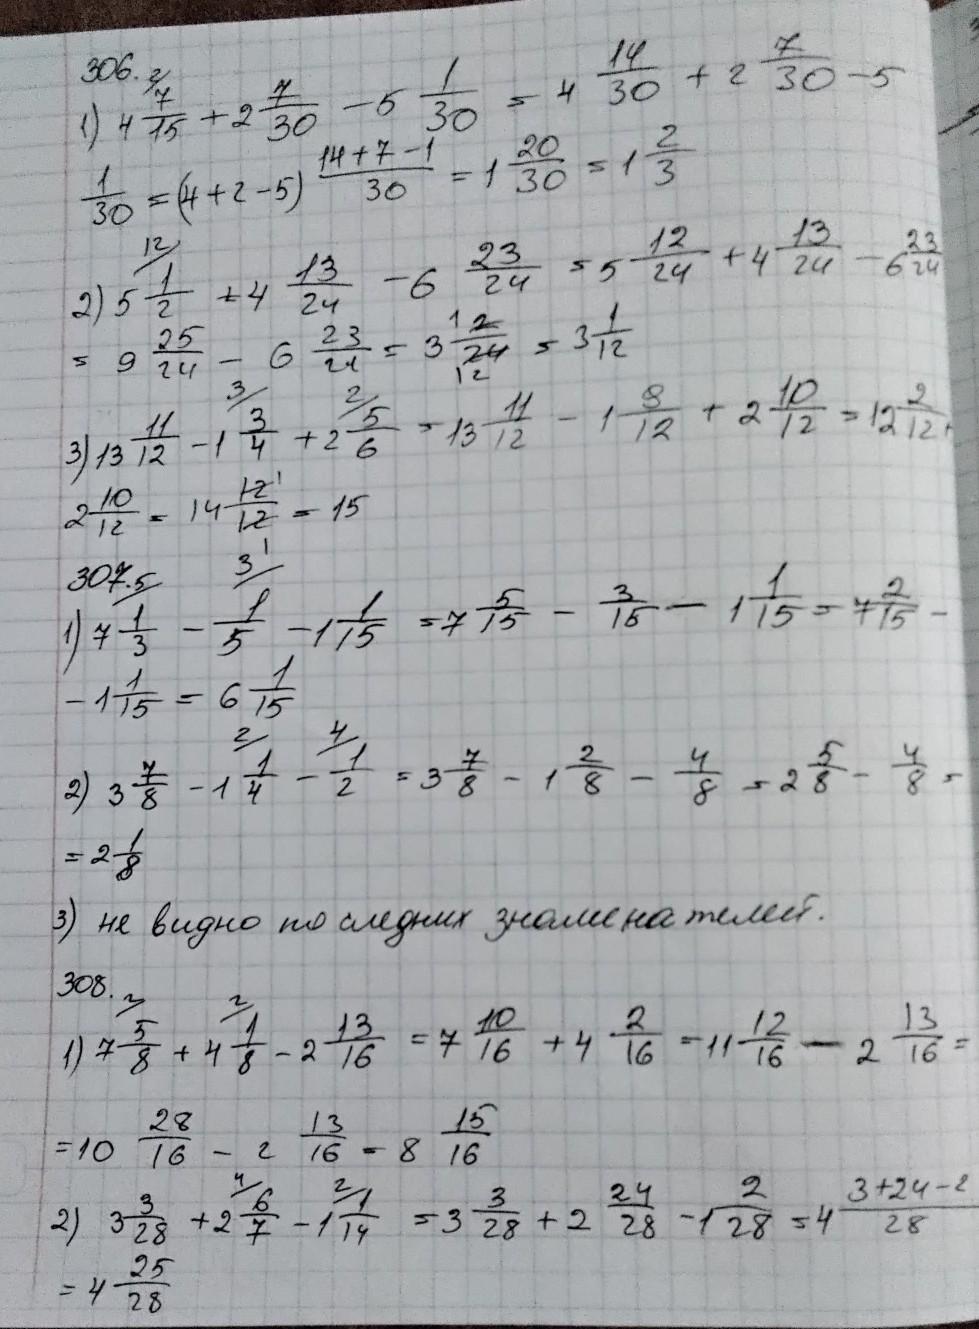 306.
1) 4 7/15 + 2 7/30 - 5 1/30 = 4 14/30 + 2 7/30 - 5
1/30 = (4+2-5) (14+7-1)/30 = 1 20/30 = 1 2/3
2) 5 1/2 + 4 13/24 - 6 23/24 = 5 12/24 + 4 13/24 - 6 23/24
= 9 25/24 - 6 23/24 = 3 2/24 = 3 1/12
3) 13 11/12 - 1 3/4 + 2 5/6 = 13 11/12 - 1 9/12 + 2 10/12 = 12 2/12 +
2 10/12 = 14 12/12 = 15
307.
1) 7 1/3 - 1/5 - 1 1/15 = 7 5/15 - 3/15 - 1 1/15 = 7 2/15 -
- 1 1/15 = 6 1/15
2) 3 7/8 - 1 1/4 - 1/2 = 3 7/8 - 1 2/8 - 4/8 = 2 5/8 - 4/8 =
= 2 1/8
3) не видно последних знаменателей.
308.
1) 7 5/8 + 4 1/8 - 2 13/16 = 7 10/16 + 4 2/16 = 11 12/16 - 2 13/16 =
= 10 28/16 - 2 13/16 = 8 15/16
2) 3 3/28 + 2 6/7 - 1 1/14 = 3 3/28 + 2 24/28 - 1 2/28 = 4 (3+24-2)/28
= 4 25/28